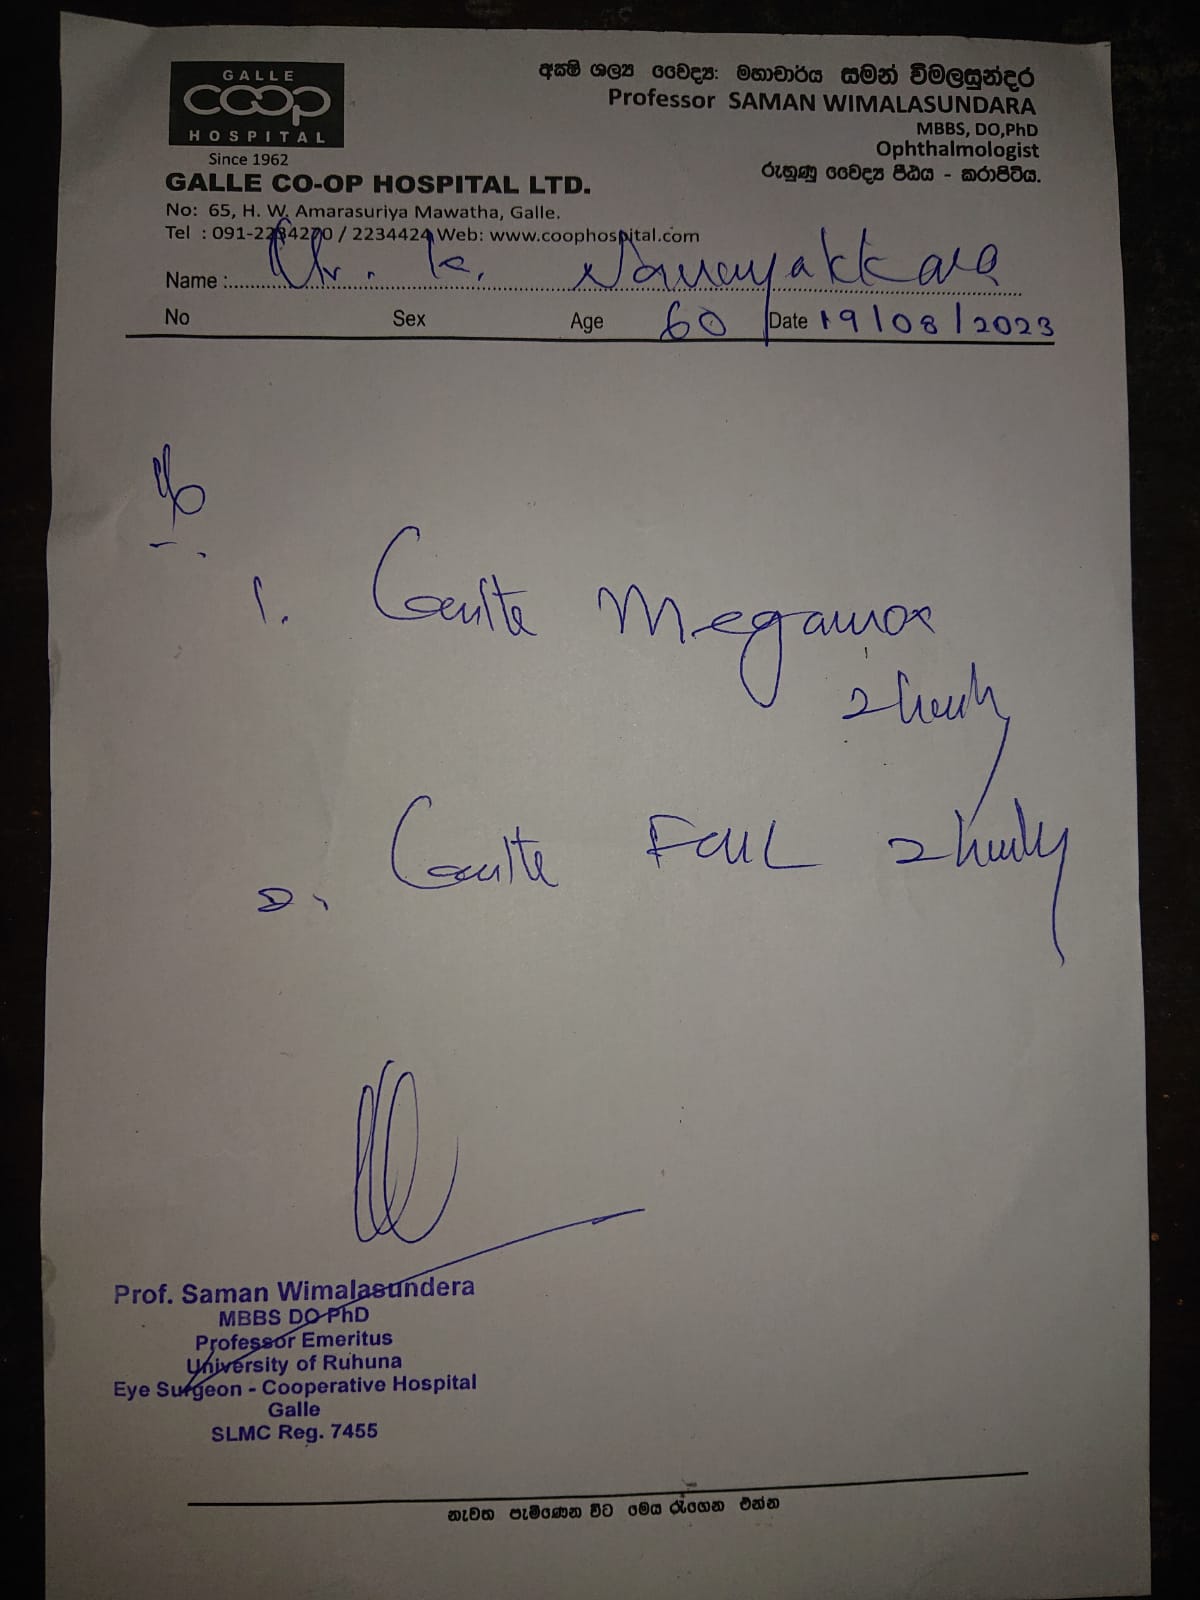 GALLE
COOP
HOSPITAL
Since 1962
GALLE CO-OP HOSPITAL LTD.
No: 65, H. W. Amarasuriya Mawatha, Galle.
Tel : 091-2234270 / 2234424 Web: www.coophospital.com
අක්ෂි ශල්‍ය වෛද්‍ය: මහාචාර්ය සමන් විමලසුන්දර
Professor SAMAN WIMALASUNDARA
MBBS, DO,PhD
Ophthalmologist
රුහුණු වෛද්‍ය පීඨය - කරාපිටිය.
Name : K. Nanayakkara
No Sex Age 60 Date 19/08/2023
1. Guttte Megamox
2 hourly
2. Guttte FML 2 hourly
Prof. Saman Wimalasundera
MBBS DO PhD
Professor Emeritus
University of Ruhuna
Eye Surgeon - Cooperative Hospital
Galle
SLMC Reg. 7455
නැවත පැමිණෙන විට මෙය රැගෙන එන්න